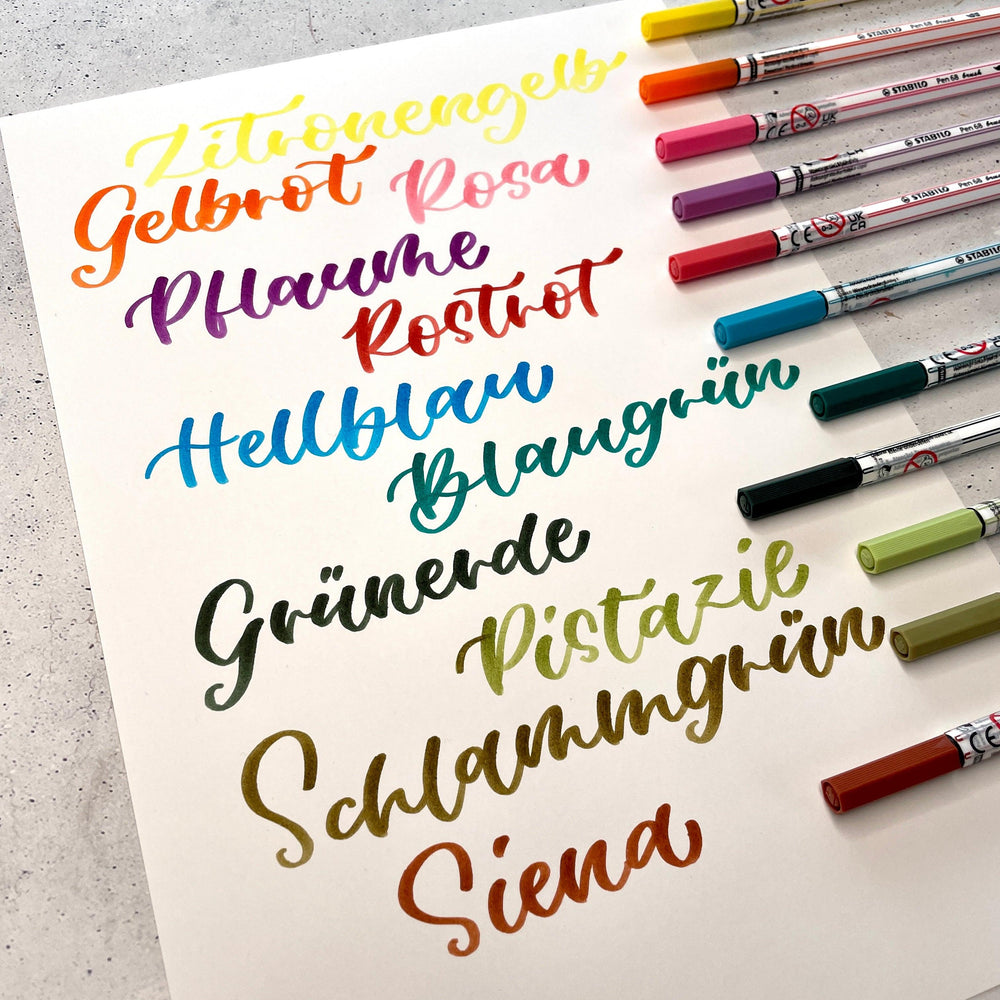 Zitronengelb
Gelbrot Rosa
Pflaume
Rostrot
Hellblau
Blaugrün
Grünerde
Pistazie
Schlammgrün
Siena
STABILO
STABILO Pen 68 brush
STABILO Pen 68 brush
STABILO Pen 68
STABILO Pen 68
STABILO